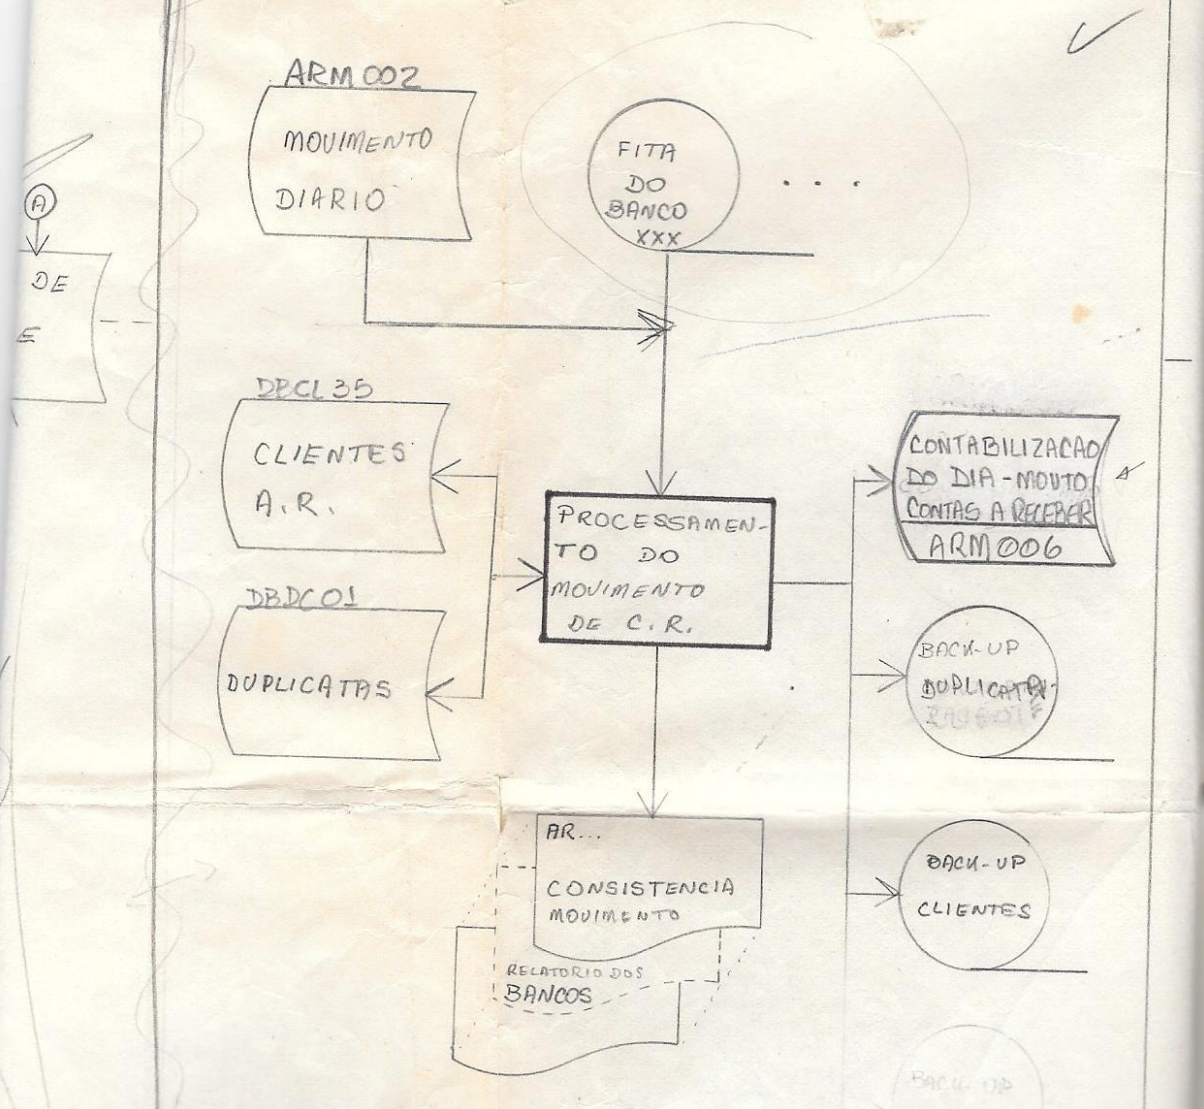 ARM 002
MOVIMENTO
DIARIO
FITA
DO
BANCO
XXX
. . .
A
DE
E
DBCL 35
CLIENTES
A.R.
DBDC01
DUPLICATAS
PROCESSAMEN-
TO DO
MOVIMENTO
DE C.R.
CONTABILIZACAO
DO DIA - MOVTO
CONTAS A RECEBER
ARM006
BACK-UP
BACK-UP
CLIENTES
AR...
CONSISTENCIA
MOVIMENTO
RELATORIO DOS
BANCOS
BACK-UP